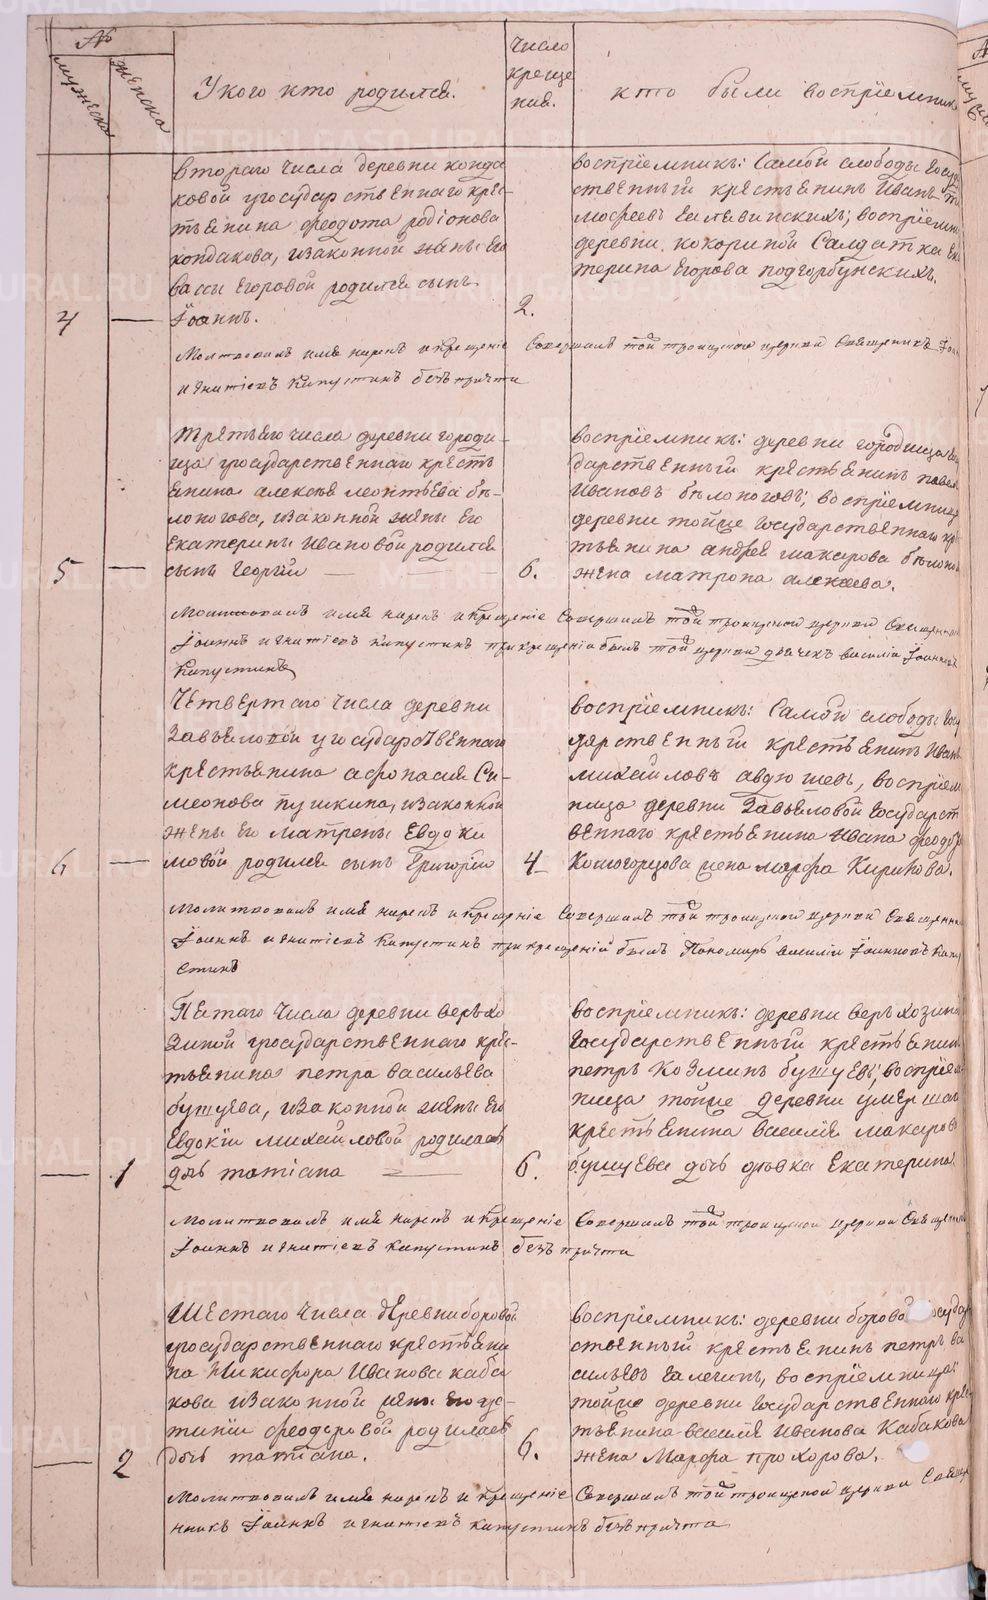 №
мужеска
женска
У кого кто родился.
Число
креще
ния.
кто были восприемник
второго числа деревни конда
ковой угосударственнаго крес-
тьянина феодота родионова
кондакова, изаконной жены его
вассы Егоровой родился сынъ
4 — Їоаннъ.
2.
восприемникъ: Самой слободы госуда
ственный крестьянинъ Иванъ
деревни кокориной Салдатка ека
терина Егорова подгорбунскихъ.
Молитвовалъ имя нарекъ икрещенїе Совершалъ той троицкой церкви Священникъ Їоан
игнатїевъ Капустинъ безъ причта
третьяго числа деревни городи-
ща государственнаго кресть
янина алексея леонтьева бѣ-
лоногова, изаконной жены его
екатерины ивановой родился
5 — сынъ георгий
6.
восприемникъ: деревни городища госу
дарственный крестьянинъ павелъ
Ивановъ бѣлоноговъ; восприемница
деревни тойже государственнаго кре
тьянина андрея макарова бѣлоног
жена матрона алексеева.
Молитвовалъ имя нарекъ икрещенїе Совершалъ той троицкой церкви Священник
Їоаннъ игнатїевъ Капустинъ прикрещенїи былъ той церкви дьячекъ василїй Їоанновъ
Капустинъ
Четвертаго числа деревни
Завьяловой угосударственнаго
крестьянина афонасия Си-
меонова пушкина, изаконной
жены его матрены Евдоки
6 — мовой родился сынъ Григорий
4
восприемникъ: Самой слободы госу
дарственный крестьянинъ Иванъ
михайловъ авдюшевъ, восприем
ница деревни Завьяловой государст
веннаго крестьянина Ивана феодор
Комогорцова жена марфа Кирикова.
Молитвовалъ имя нарекъ икрещенїе Совершалъ той троицкой церкви Священник
Їоаннъ игнатїевъ Капустинъ прикрещенїи былъ Пономарь василїй Їоанновъ Капу
стинъ
Пятаго числа деревни верьхо
зиной государственнаго крес-
тьянина петра васильева
бушуева, изаконной жены его
Евдокїи михайловой родилась
— 1 дочь татїана
6.
восприемникъ: деревни верьхозиной
государственный крестьянин
петръ Козминъ бушуевъ; восприем
ница тойже деревни умершаго
крестьянина василия макаров
бушуева дочь девка Екатерина
Молитвовалъ имя нарекъ икрещенїе Совершалъ той троицкой церкви Священник
Їоаннъ игнатїевъ Капустинъ безъ причта
Шестаго числа деревни боровой
государственнаго крестьяни
на Никифора Иванова каба
кова изаконной жены его ус-
тинїи феодоровой родилась
— 2 дочь татїана.
6.
восприемникъ: деревни боровой государ
ственный крестьянинъ петръ ва
сильевъ Галечинъ, восприемница:
тойже деревни государственнаго крес
тьянина василия Иванова Кабакова
жена Марфа прохорова.
Молитвовалъ имя нарекъ и крещенїе Совершалъ той троицкой церкви Свяще
нникъ Їоаннъ игнатїевъ Капустинъ безъ причта